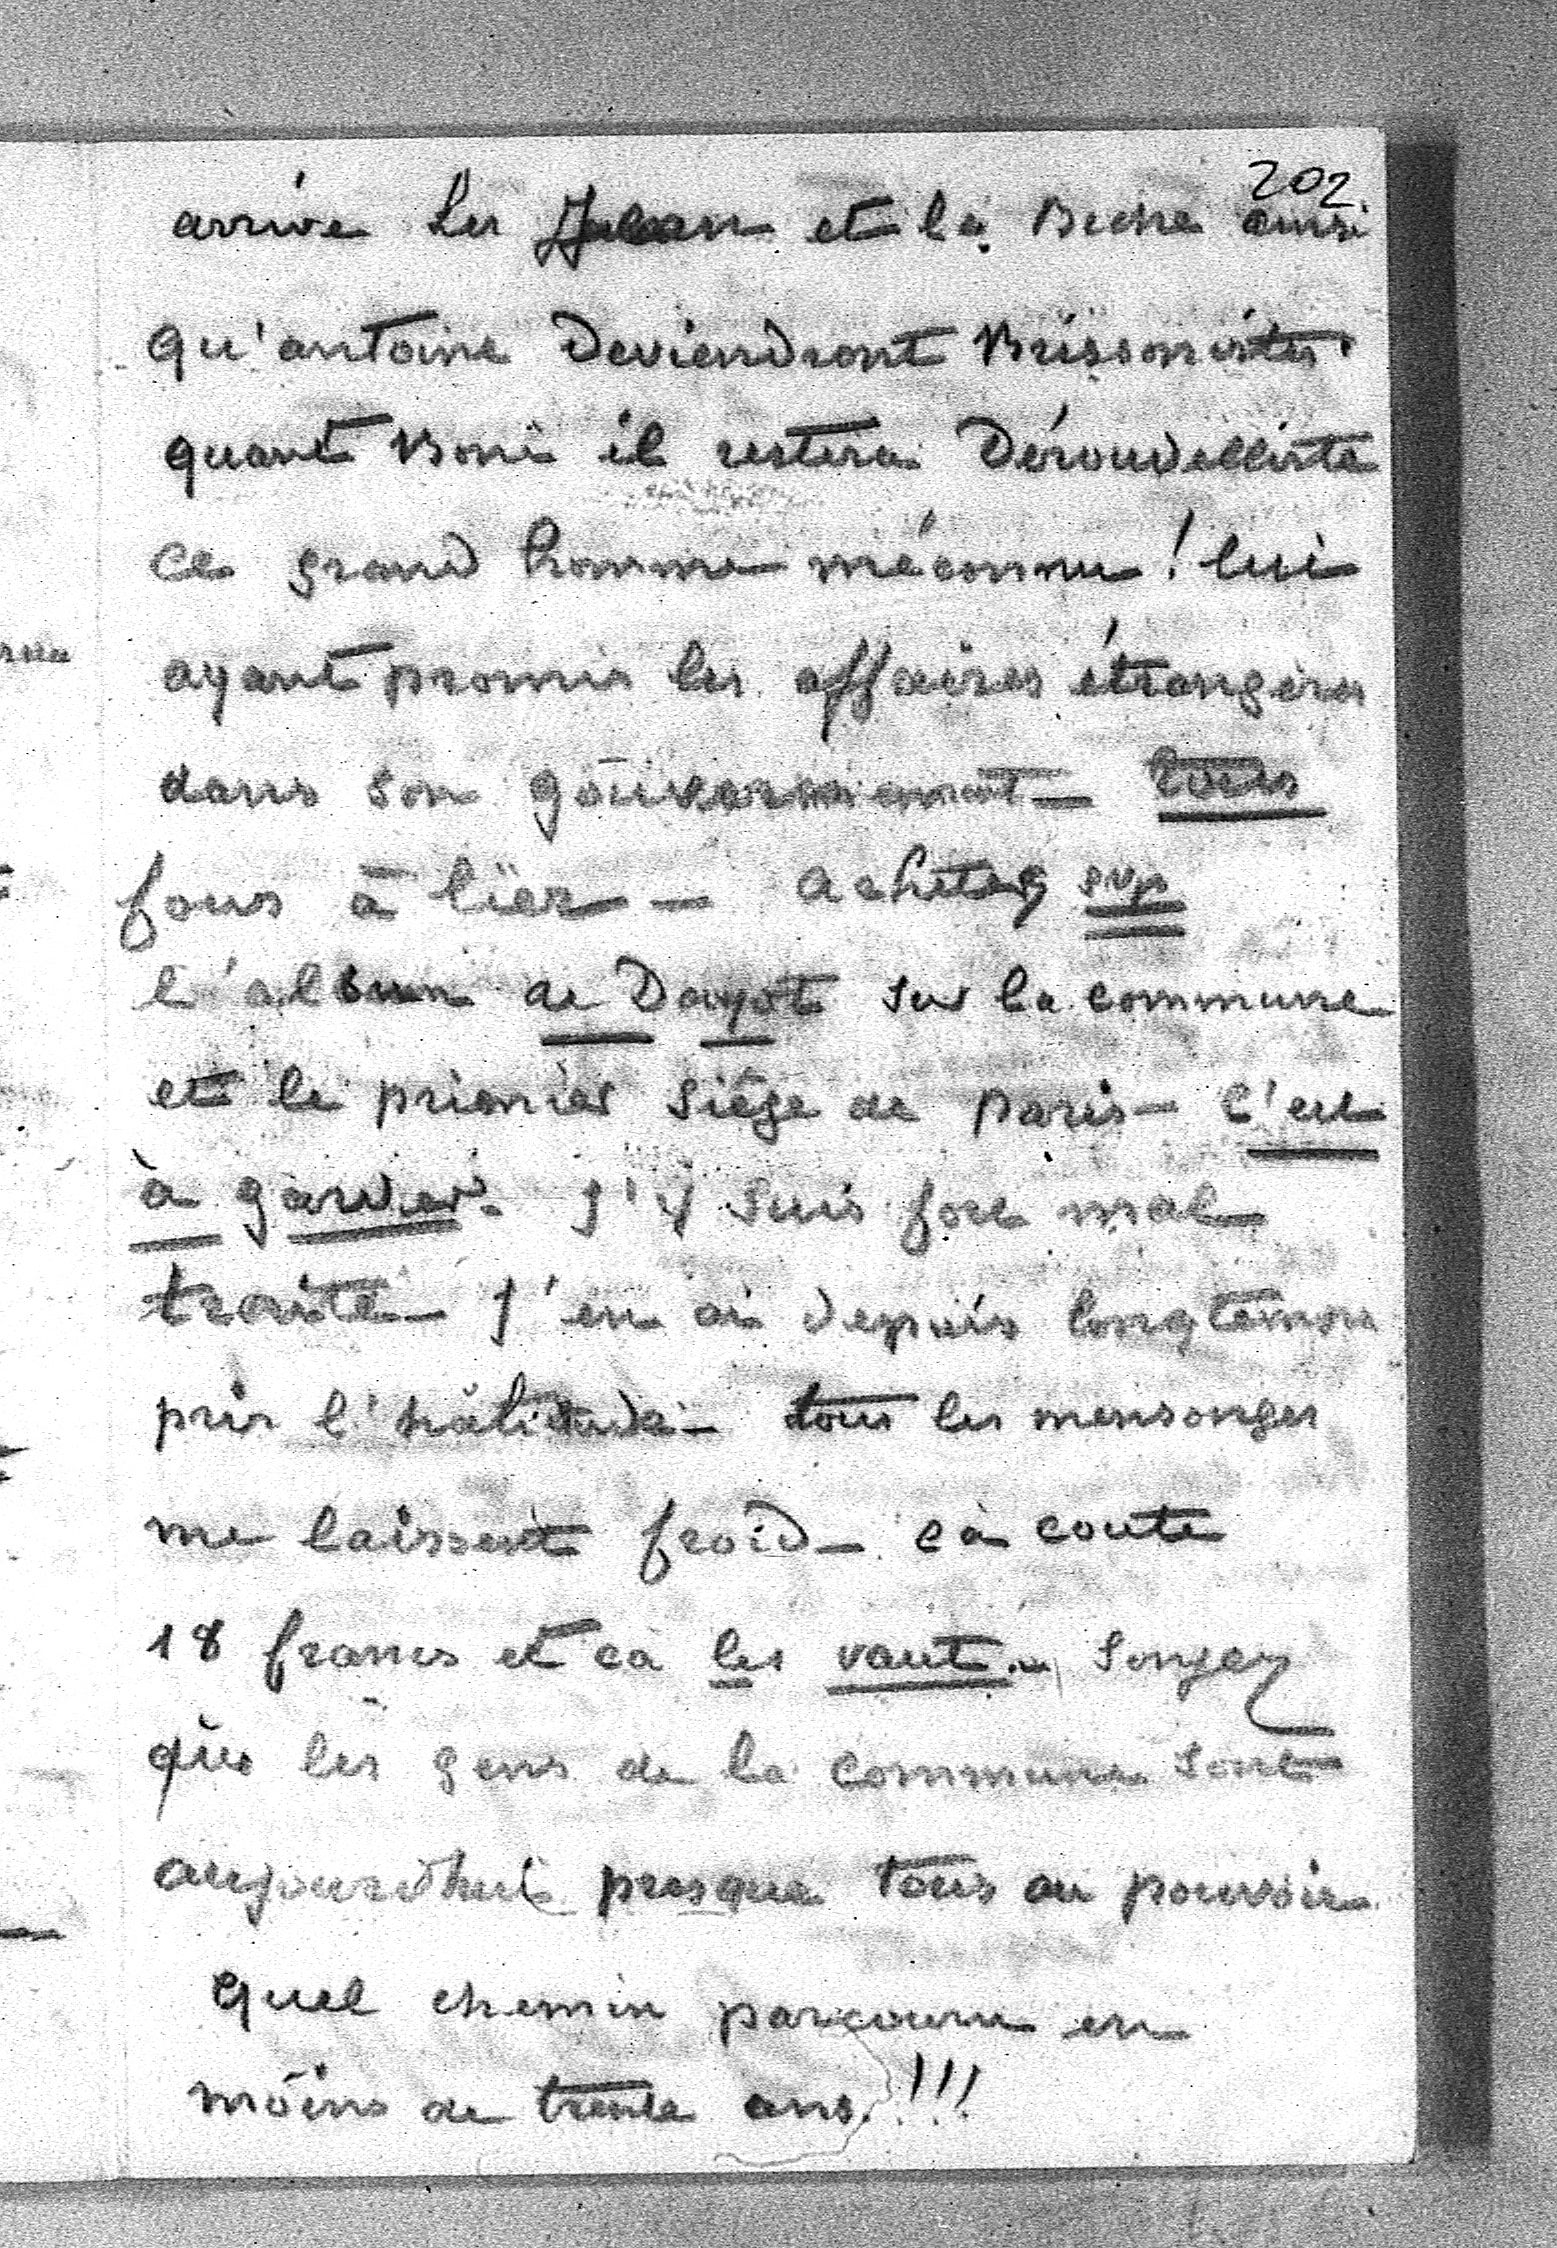 202
arrive les et la Biche ainsi
qu'antoine Deviendront Brissonistes.
quant Boni il restera Déroudelliste
ce grand homme méconnu ! lui
ayant promis les affaires étrangères
dans son gouvernement — tous
fous à lier — achetez svp
l'album de Dayot sur la commune
et le premier siège de Paris — c'est
à garder. J'y suis fort mal
traité — J'en ai depuis longtemps
pris l'habitude — tous les mensonges
me laissent froid — cà coute
18 francs et cà les vaut. Songez
que les gens de la commune sont
aujourdhui presque tous au pouvoir
quel chemin parcouru en
moins de trente ans !!!